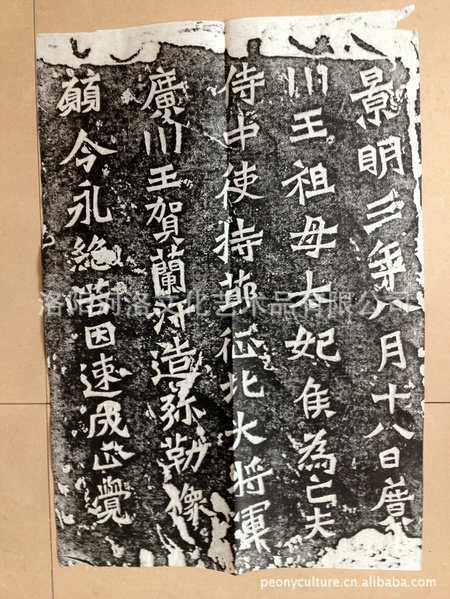 景明三年八月十八日廣
川王祖母大妃侯為亡夫
侍中使持節征北大將軍
廣川王賀蘭汗造弥勒像
願令永絕苦因速成正覺
洛阳河洛文化艺术品有限公司
peonyculture.cn.alibaba.com